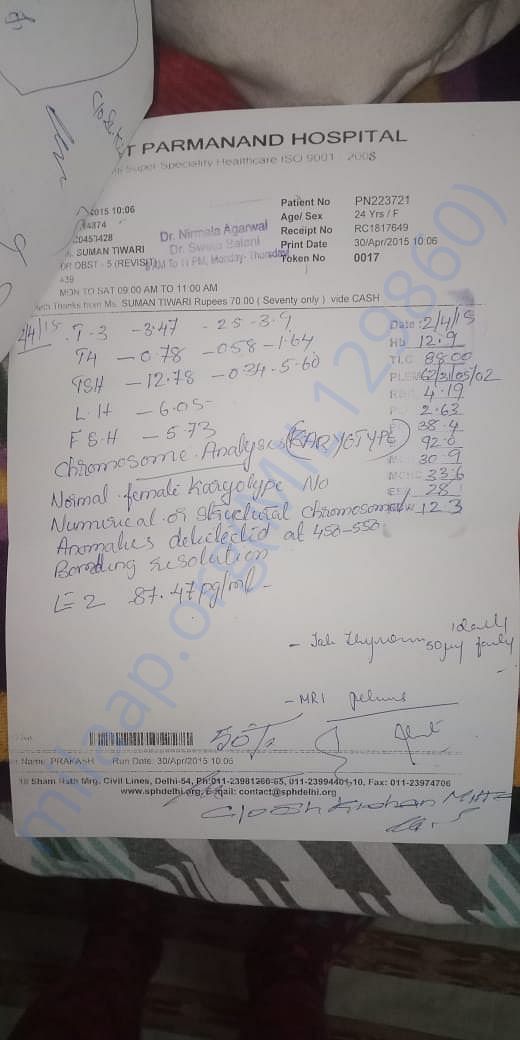 T PARMANAND HOSPITAL
Super Speciality Healthcare ISO 9001 : 2008
2015 10:06
Patient No PN223721
Age/ Sex 24 Yrs / F
20453428
Receipt No RC1817649
SUMAN TIWARI
Print Date 30/Apr/2015 10:06
OBST - 5 (REVISIT)
Token No 0017
Dr. Nirmala Agarwal
Dr. Sweta Balani
To 11 PM, Monday- Thursday
MON TO SAT 09:00 AM TO 11:00 AM
With Thanks from Ms. SUMAN TIWARI Rupees 70.00 ( Seventy only ) vide CASH
2/4/15 T-3 - 3.47 - 25-3.9
T4 - 0.78 - 058-1.64
TSH - 12.78 - 034-5.60
L.H - 6.05-
FSH - 5.73
Chromosome Analyses (KARYGTYPE)
Normal female Karyotype No
Numerical or structural chromosomal
Anomalies detectedid at 450-550
Banding resolution
E2 87.47 pg/ml -
Date: 2/4/15
Hb 12.9
TLC 8800
4.19
2.63
38.4
92.0
30.9
MCHC 33.6
28
12.3
- Tab Thyronorm 50
- MRI pelvis
50%
Name: PRAKASH Run Date: 30/Apr/2015 10:06
18 Sham Nath Mrg. Civil Lines, Delhi-54, Ph:011-23981260-65, 011-23994401-10, Fax: 011-23974706
www.sphdelhi.org, E-mail: contact@sphdelhi.org
milaap.org